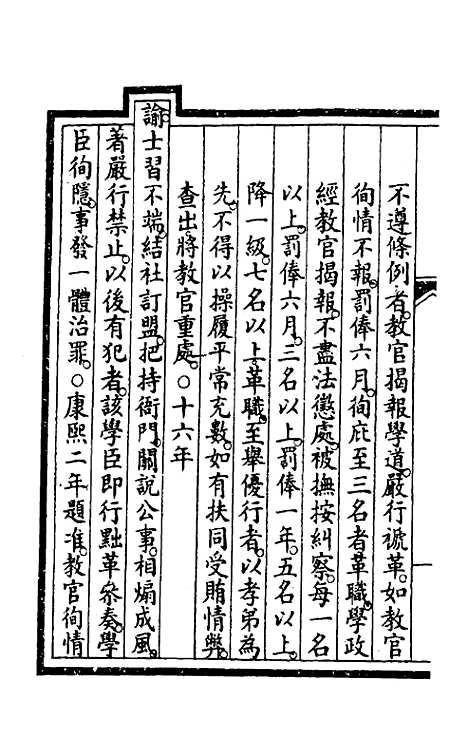 不遵條例者。教官揭報學道。嚴行褫革。如教官
徇情不報。罰俸六月。徇庇至三名者革職。學政
經教官揭報。不盡法懲處。被撫按糾察。每一名
以上。罰俸六月。三名以上。罰俸一年。五名以上。
降一級。七名以上。革職。至舉優行者。以孝弟為
先。不得以操履平常充數。如有扶同受賄情弊。
查出。將教官重處。○十六年
諭士習不端。結社訂盟。把持衙門。關說公事。相煽成風。
著嚴行禁止。以後有犯者。該學臣即行黜革參奏。學
臣徇隱。事發一體治罪。○康熙二年題准。教官徇情